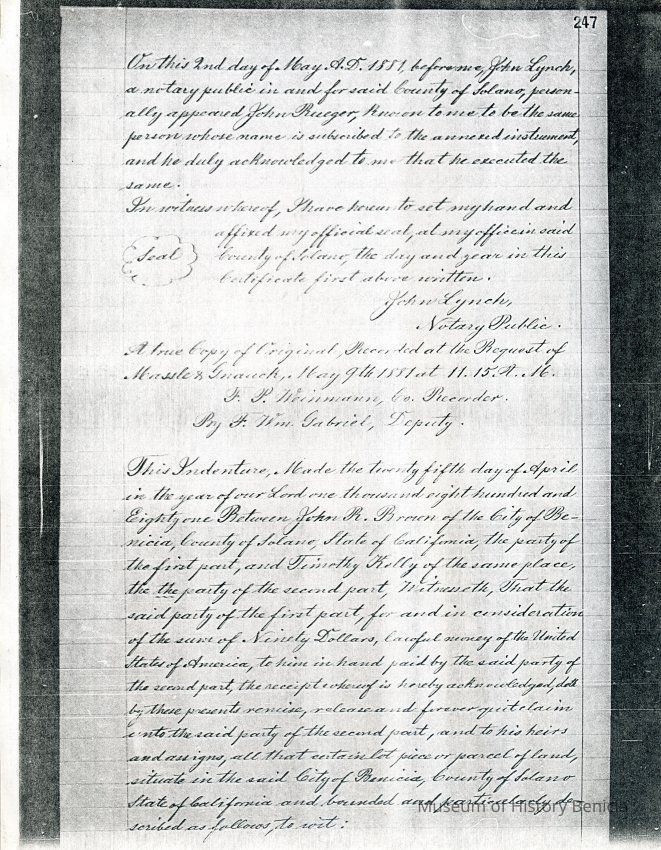 247
On this 2nd day of May A.D. 1881, before me, John Lynch,
a notary public in and for said County of Solano, person-
ally appeared John Rueger, known to me to be the same
person whose name is subscribed to the annexed instrument,
and he duly acknowledged to me that he executed the
same.
In witness whereof, I have hereunto set my hand and
affixed my official seal, at my office in said
Seal
County of Solano, the day and year in this
Certificate first above written.
John Lynch,
Notary Public.
A true Copy of Original, Recorded at the Request of
Massle & Gnauck, May 9th 1881 at 11.15. A. M.
F. P. Weinmann, Co. Recorder.
By F. Wm. Gabriel, Deputy.
This Indenture, Made the twenty fifth day of April
in the year of our Lord one thousand eight hundred and
Eighty one Between John R. Brown of the City of Be-
nicia, County of Solano, State of California, the party of
the first part, and Timothy Kelly of the same place,
the the party of the second part, Witnesseth, That the
said party of the first part, for and in consideration
of the sum of Ninety Dollars, lawful money of the United
States of America, to him in hand paid by the said party of
the second part, the receipt whereof is hereby acknowledged, doth
by these presents remise, release and forever quit claim
unto the said party of the second part, and to his heirs
and assigns, all that certain lot piece or parcel of land,
situate in the said City of Benicia, County of Solano
State of California and bounded and particularly de-
scribed as follows, to wit:
Museum of History Benicia